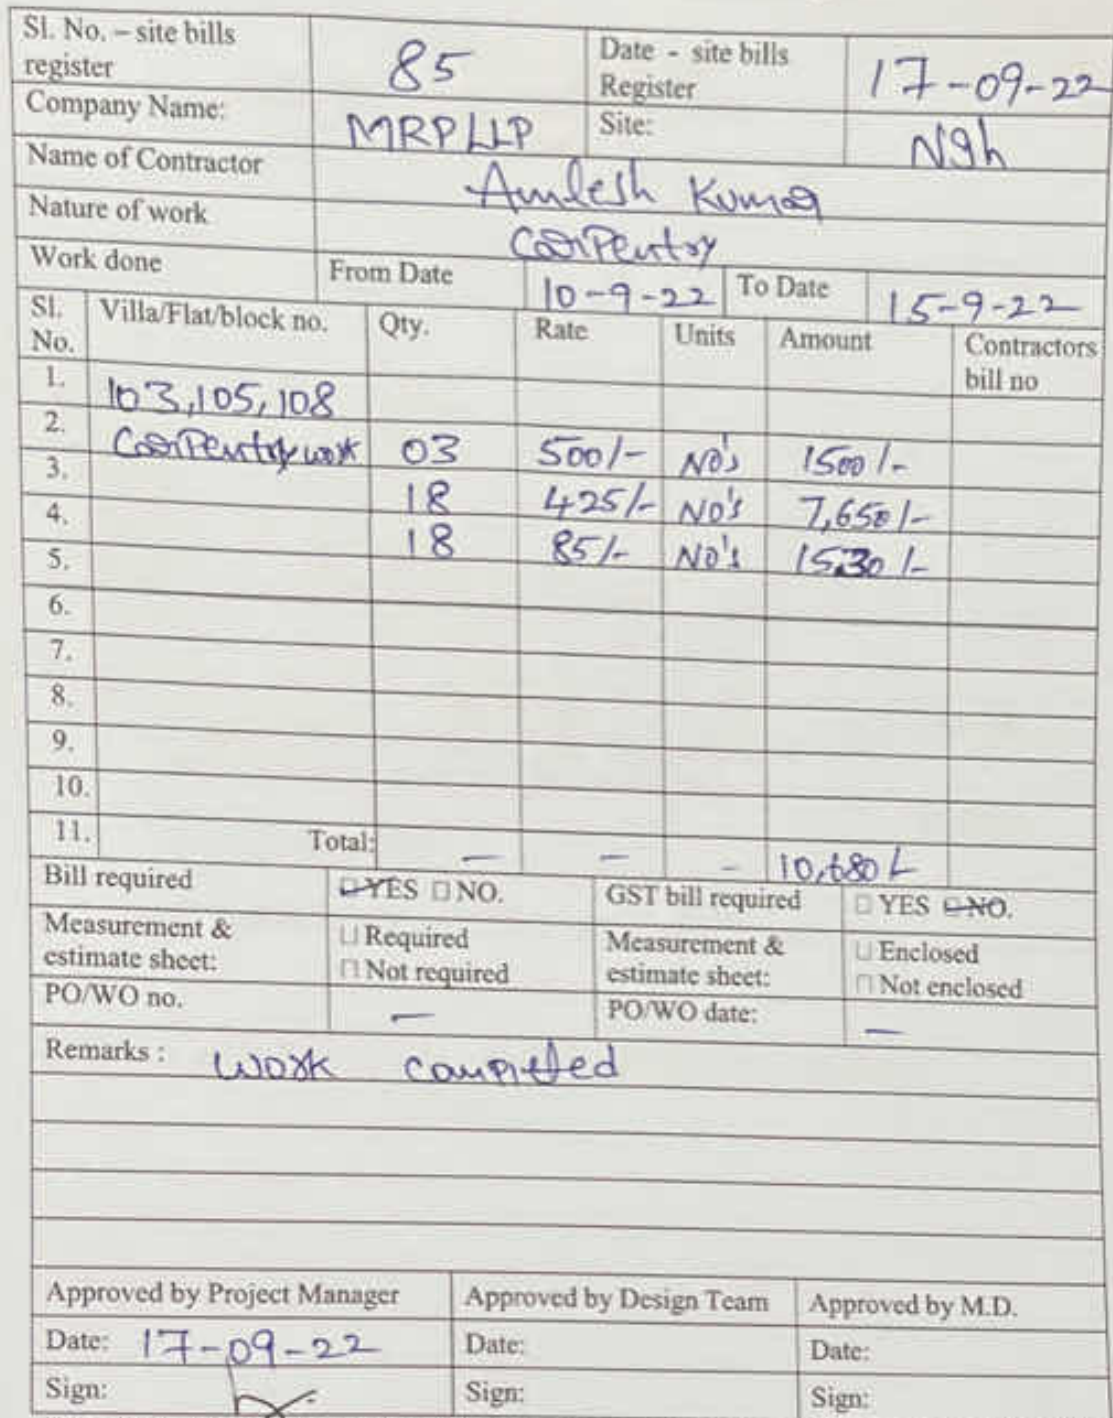 Sl. No. – site bills register 85 Date - site bills Register 17-09-22
Company Name: MRPLLP Site: Ngh
Name of Contractor Amlesh Kumar
Nature of work Carpentry
Work done From Date 10-9-22 To Date 15-9-22
Sl. No. Villa/Flat/block no. Qty. Rate Units Amount Contractors bill no
1. 103,105,108
2. Carpentry work 03 500/- NO's 1500/-
3. 18 425/- NO's 7,650/-
4. 18 85/- NO's 1530/-
5.
6.
7.
8.
9.
10.
11. Total: — — - 10,680/-
Bill required YES NO. GST bill required YES NO.
Measurement & estimate sheet: Required Not required Measurement & estimate sheet: Enclosed Not enclosed
PO/WO no. — PO/WO date: —
Remarks : Work completed
Approved by Project Manager Approved by Design Team Approved by M.D.
Date: 17-09-22 Date: Date:
Sign: Sign: Sign: